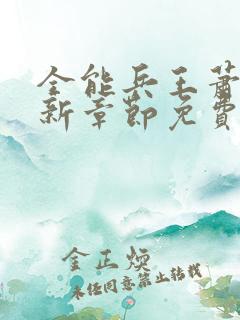 全能兵王萧
新章节免费
金正焕
未经同意禁止转载